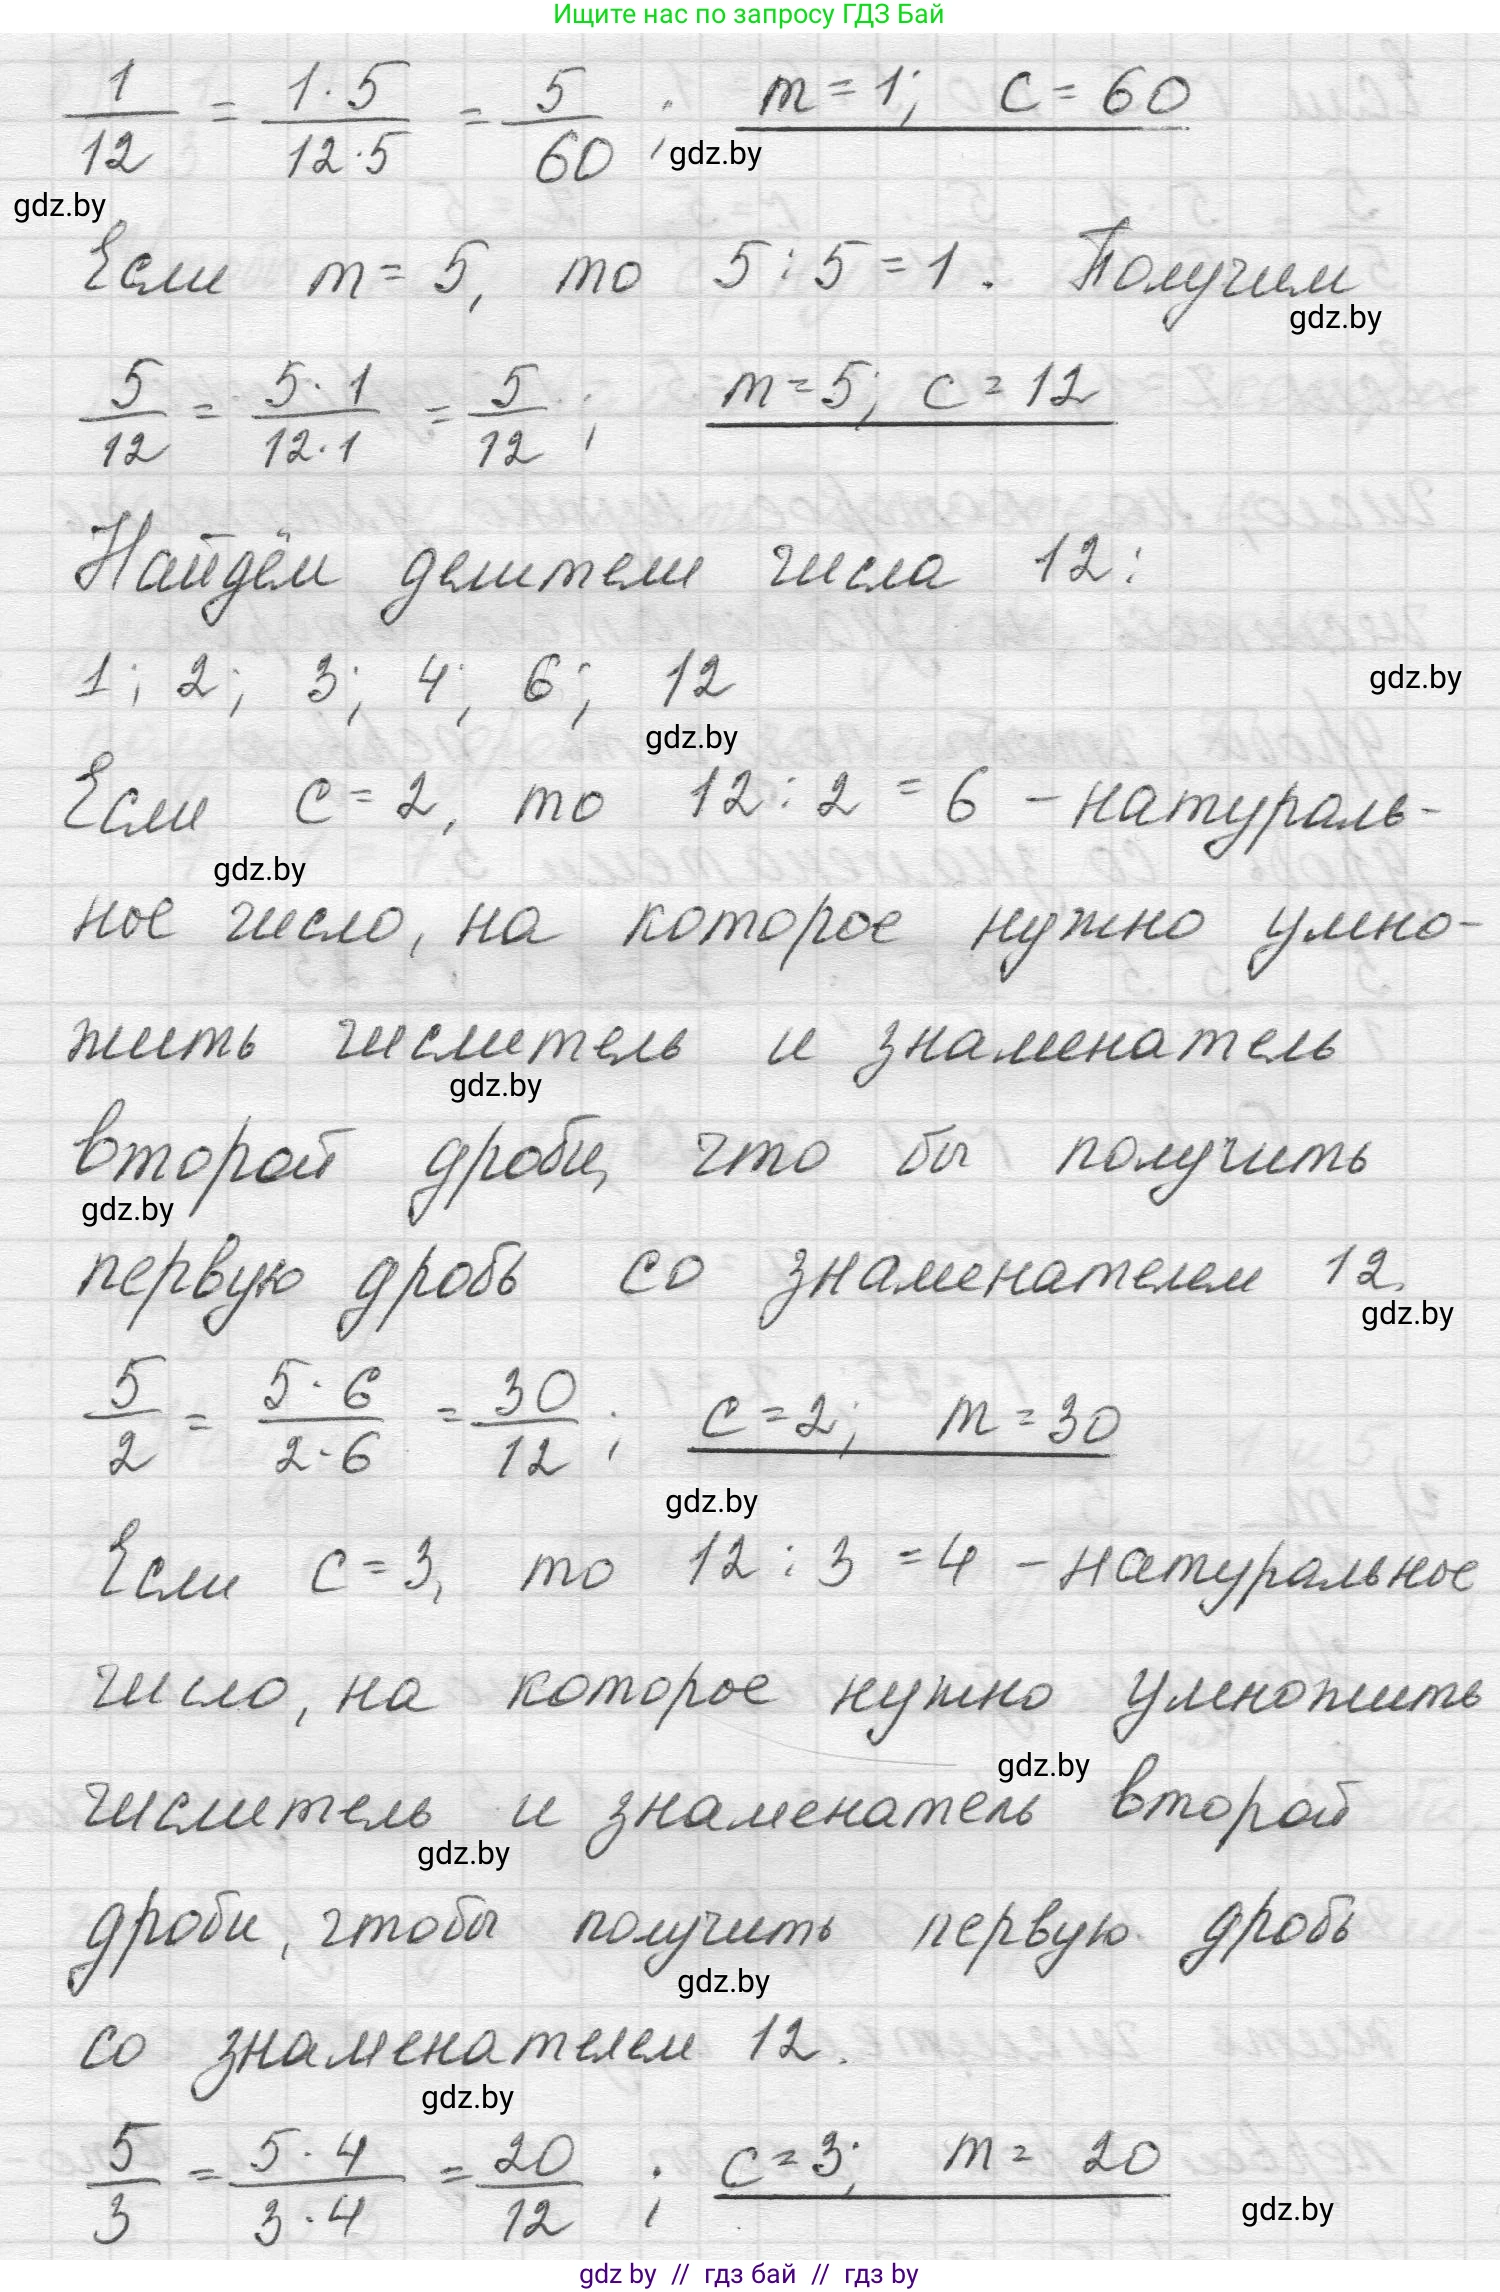 Ищите нас по запросу ГДЗ Бай
1/12 = 1·5/12·5 = 5/60; m=1; c=60
gdz.by
gdz.by
Если m=5, то 5:5=1. Получим
gdz.by
5/12 = 5·1/12·1 = 5/12; m=5; c=12
Найдём делители числа 12:
1; 2; 3; 4; 6; 12
gdz.by
gdz.by
Если c=2, то 12:2=6 – натураль-
gdz.by
ное число, на которое нужно умно-
жить числитель и знаменатель
gdz.by
второй дроби, что бы получить
gdz.by
первую дробь со знаменателем 12.
gdz.by
5/2 = 5·6/2·6 = 30/12; c=2; m=30
gdz.by
Если c=3, то 12:3=4 – натуральное
число, на которое нужно умножить
gdz.by
числитель и знаменатель второй
gdz.by
дроби, чтобы получить первую дробь
gdz.by
со знаменателем 12.
gdz.by
5/3 = 5·4/3·4 = 20/12; c=3; m=20
gdz.by
gdz.by // гдз бай // гдз by